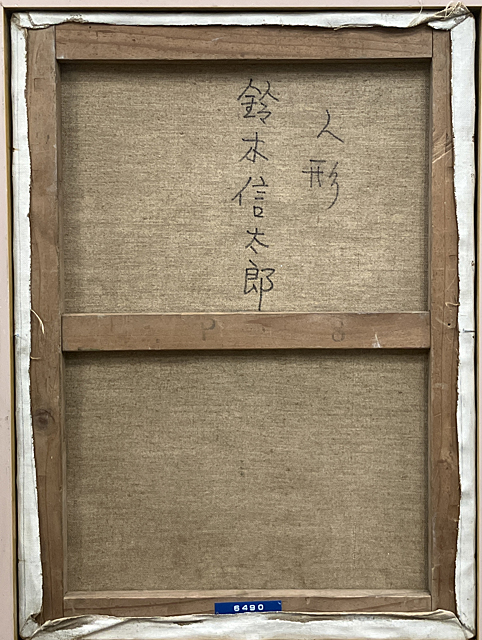 人形
鈴木信太郎
P 8
6490